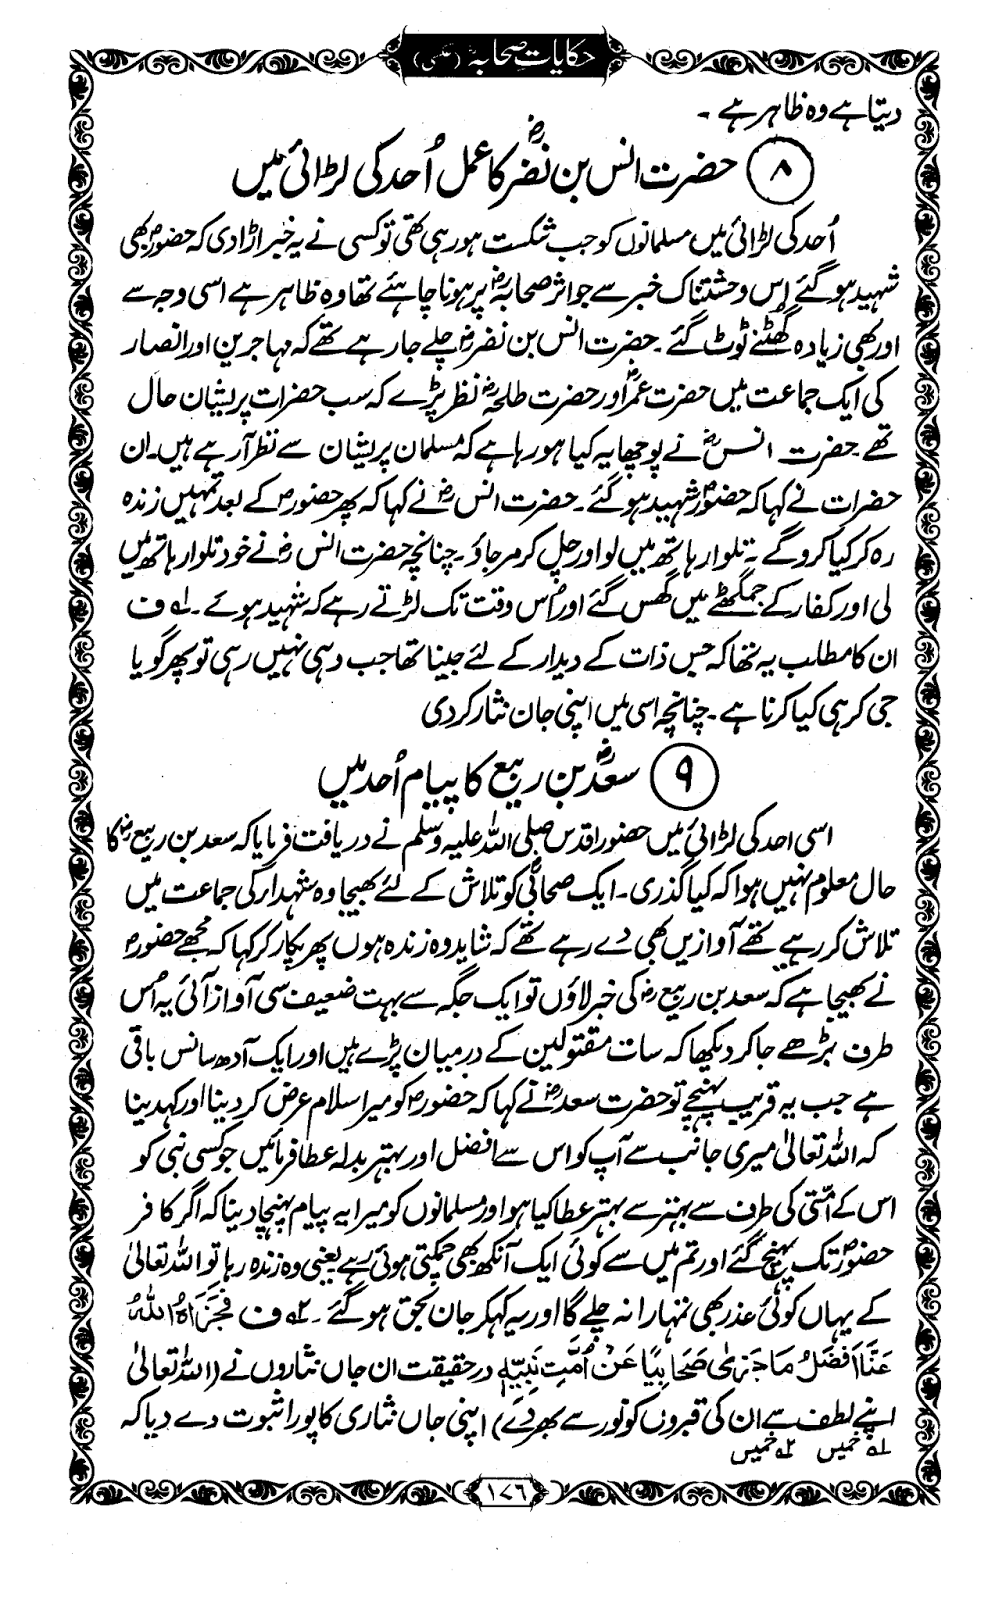 حکایاتِ صحابہؓ (عکسی)
دیتا ہے وہ ظاہر ہے ۔
۸ حضرت انس بن نضرؓ کا عمل اُحد کی لڑائی میں
اُحد کی لڑائی میں مسلمانوں کو جب شکست ہو رہی تھی تو کسی نے یہ خبر اڑا دی کہ حضورؐ بھی
شہید ہو گئے اِس وحشتناک خبر سے جو اثر صحابہؓ پر ہونا چاہئے تھا وہ ظاہر ہے اسی وجہ سے
اور بھی زیادہ گھٹنے ٹوٹ گئے ۔ حضرت انس بن نضرؓ چلے جا رہے تھے کہ مہاجرین اور انصار
کی ایک جماعت میں حضرت عمرؓ اور حضرت طلحہؓ نظر پڑے کہ سب حضرات پریشان حال
تھے ۔ حضرت انسؓ نے پوچھا یہ کیا ہو رہا ہے کہ مسلمان پریشان سے نظر آ رہے ہیں۔ ان
حضرات نے کہا کہ حضورؐ شہید ہو گئے ۔ حضرت انسؓ نے کہا کہ پھر حضورؐ کے بعد تمہیں زندہ
رہ کر کیا کرو گے ۔ تلوار ہاتھ میں لو اور چل کر مر جاؤ ۔ چنانچہ حضرت انسؓ نے خود تلوار ہاتھ میں
لی اور کفار کے جمگھٹے میں گھس گئے اور اُس وقت تک لڑتے رہے کہ شہید ہوئے ۔ لہ ف
ان کا مطلب یہ تھا کہ جس ذات کے دیدار کے لئے جینا تھا جب وہی نہیں رہی تو پھر گویا
جی کر ہی کیا کرنا ہے ۔ چنانچہ اسی میں اپنی جان نثار کر دی
۹ سعدؓ بن ربیع کا پیام اُحد میں
اسی احد کی لڑائی میں حضورِ اقدس صلی اللہ علیہ وسلم نے دریافت فرمایا کہ سعد بن ربیعؓ کا
حال معلوم نہیں ہوا کہ کیا گذری ۔ ایک صحابیؓ کو تلاش کے لئے بھیجا وہ شہداء کی جماعت میں
تلاش کر رہے تھے آوازیں بھی دے رہے تھے کہ شاید وہ زندہ ہوں پھر پکار کر کہا کہ مجھے حضورؐ
نے بھیجا ہے کہ سعد بن ربیعؓ کی خبر لاؤں تو ایک جگہ سے بہت ضعیف سی آواز آئی یہ اُس
طرف بڑھے جا کر دیکھا کہ سات مقتولین کے درمیان پڑے ہیں اور ایک آدھ سانس باقی
ہے جب یہ قریب پہنچے تو حضرت سعدؓ نے کہا کہ حضورؐ کو میرا سلام عرض کر دینا اور کہدینا
کہ اللہ تعالیٰ میری جانب سے آپ کو اس سے افضل اور بہتر بدلہ عطا فرمائیں جو کسی نبی کو
اس کے اُمّتی کی طرف سے بہتر سے بہتر عطا کیا ہو اور مسلمانوں کو میرا یہ پیام پہنچا دینا کہ اگر کافر
حضورؐ تک پہنچ گئے اور تم میں سے کوئی ایک آنکھ بھی چمکتی ہوئی رہے یعنی وہ زندہ رہا تو اللہ تعالیٰ
کے یہاں کوئی عذر بھی تمہارا نہ چلے گا اور یہ کہہ کر جان بحق ہو گئے ۔ ٢ہ ف فَجَزَاہُ اللہُ
عَنَّا اَفْضَلُ مَاجَزٰی صَحَابِیًا عَنْ اُمَّتِ نَبِیِّہٖ درحقیقت ان جاں نثاروں نے (اللہ تعالیٰ
اپنے لطف سے ان کی قبروں کو نور سے بھر دے) اپنی جاں نثاری کا پورا ثبوت دے دیا کہ
لہ خمیس ٢ہ خمیس
۱۷۶